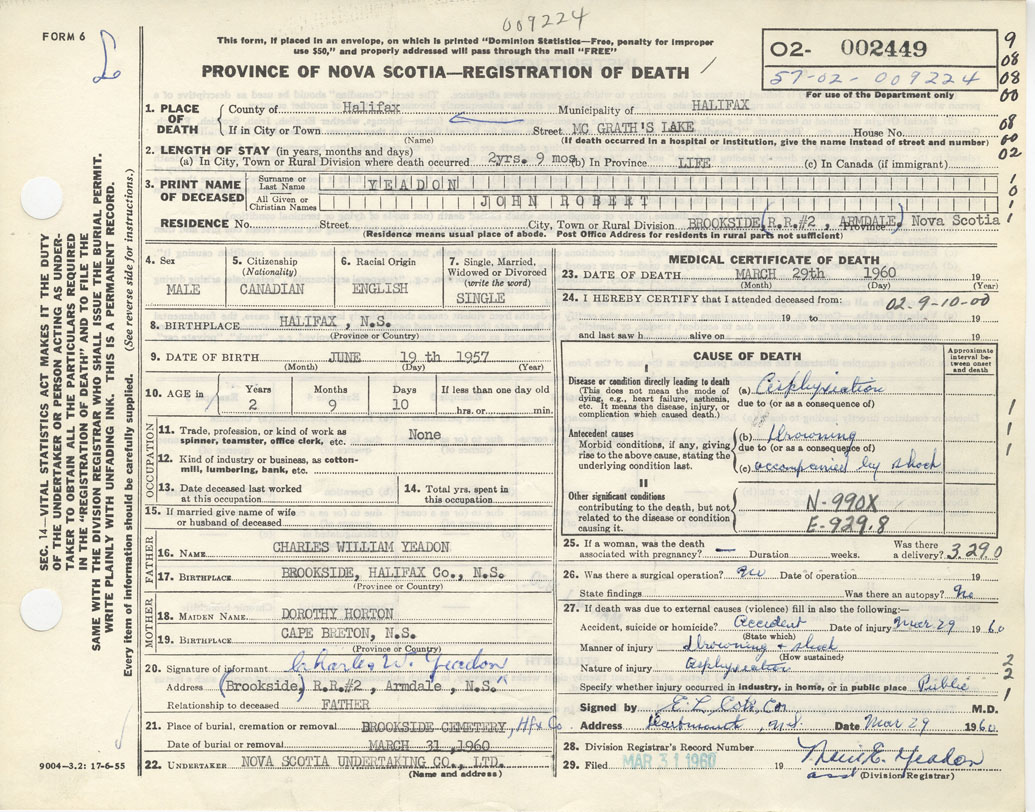 009224
FORM 6
This form, if placed in an envelope, on which is printed "Dominion Statistics—Free, penalty for improper
use $50," and properly addressed will pass through the mail "FREE"
PROVINCE OF NOVA SCOTIA—REGISTRATION OF DEATH
02- 002449
57-02-009224
For use of the Department only
9
08
08
00
08
00
02
1
0
1
1
1
1
1
2
2
1
SEC. 14—VITAL STATISTICS ACT MAKES IT THE DUTY
OF THE UNDERTAKER OR PERSON ACTING AS UNDER-
TAKER TO OBTAIN ALL THE PARTICULARS REQUIRED
IN THE "REGISTRATION OF DEATH" AND TO FILE THE
SAME WITH THE DIVISION REGISTRAR WHO SHALL ISSUE THE BURIAL PERMIT.
WRITE PLAINLY WITH UNFADING INK. THIS IS A PERMANENT RECORD.
Every item of information should be carefully supplied. (See reverse side for instructions.)
1. PLACE OF DEATH
County of Halifax Municipality of HALIFAX
If in City or Town Street MC GRATH'S LAKE House No.
(Name) (If death occurred in a hospital or institution, give the name instead of street and number)
2. LENGTH OF STAY (in years, months and days)
(a) In City, Town or Rural Division where death occurred 2yrs. 9 mos (b) In Province LIFE (c) In Canada (if immigrant)
3. PRINT NAME OF DECEASED
Surname or Last Name YEADON
All Given or Christian Names JOHN ROBERT
RESIDENCE No. Street City, Town or Rural Division BROOKSIDE (R.R.#2, ARMDALE,) Province Nova Scotia
(Residence means usual place of abode. Post Office Address for residents in rural parts not sufficient)
4. Sex
MALE
5. Citizenship
(Nationality)
CANADIAN
6. Racial Origin
ENGLISH
7. Single, Married,
Widowed or Divorced
(write the word)
SINGLE
8. BIRTHPLACE HALIFAX, N.S.
(Province or Country)
9. DATE OF BIRTH JUNE 19 th 1957
(Month) (Day) (Year)
10. AGE in
Years 2
Months 9
Days 10
If less than one day old
hrs. or min.
OCCUPATION
11. Trade, profession, or kind of work as
spinner, teamster, office clerk, etc. None
12. Kind of industry or business, as cotton-
mill, lumbering, bank, etc.
13. Date deceased last worked
at this occupation
14. Total yrs. spent in
this occupation
15. If married give name of wife
or husband of deceased
FATHER
16. NAME CHARLES WILLIAM YEADON
17. BIRTHPLACE BROOKSIDE, HALIFAX Co., N.S.
(Province or Country)
MOTHER
18. MAIDEN NAME DOROTHY HORTON
19. BIRTHPLACE CAPE BRETON, N.S.
(Province or Country)
20. Signature of informant Charles W. Yeadon
Address (Brookside) R.R.#2, Armdale, N.S.
Relationship to deceased FATHER
21. Place of burial, cremation or removal BROOKSIDE CEMETERY, Hfx Co
Date of burial or removal MARCH 31, 1960
22. UNDERTAKER NOVA SCOTIA UNDERTAKING CO., LTD.
(Name and address)
9004—3.2: 17-6-55
MEDICAL CERTIFICATE OF DEATH
23. DATE OF DEATH MARCH 29th 1960 19
(Month) (Day) (Year)
24. I HEREBY CERTIFY that I attended deceased from: 02-9-10-00
19 to 19
and last saw h alive on 19
CAUSE OF DEATH
Approximate
interval be-
tween onset
and death
I
Disease or condition directly leading to death
(This does not mean the mode of
dying, e.g., heart failure, asthenia,
etc. It means the disease, injury, or
complication which caused death.)
(a) Asphyxiation
due to (or as a consequence of)
Antecedent causes
Morbid conditions, if any, giving
rise to the above cause, stating the
underlying condition last.
(b) Drowning
due to (or as a consequence of)
(c) accompanied by shock
II
Other significant conditions
contributing to the death, but not
related to the disease or condition
causing it.
N-990X
E-929.8
25. If a woman, was the death
associated with pregnancy? — Duration weeks. Was there
a delivery? 3.29.0
26. Was there a surgical operation? No Date of operation 19
State findings Was there an autopsy? No
27. If death was due to external causes (violence) fill in also the following:—
Accident, suicide or homicide? Accident Date of injury Mar 29 1960
(State which)
Manner of injury drowning + shock
(How sustained)
Nature of injury Asphyxiation
Specify whether injury occurred in industry, in home, or in public place Public
Signed by M.D.
Address Dartmouth, N.S. Date Mar 29 1960
28. Division Registrar's Record Number
29. Filed MAR 31 1960 19 Yeadon
(Division Registrar)